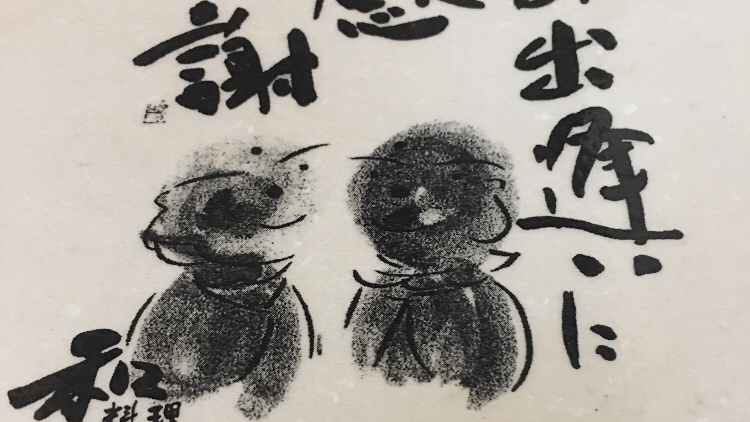 出逢いに
感謝
和
料理